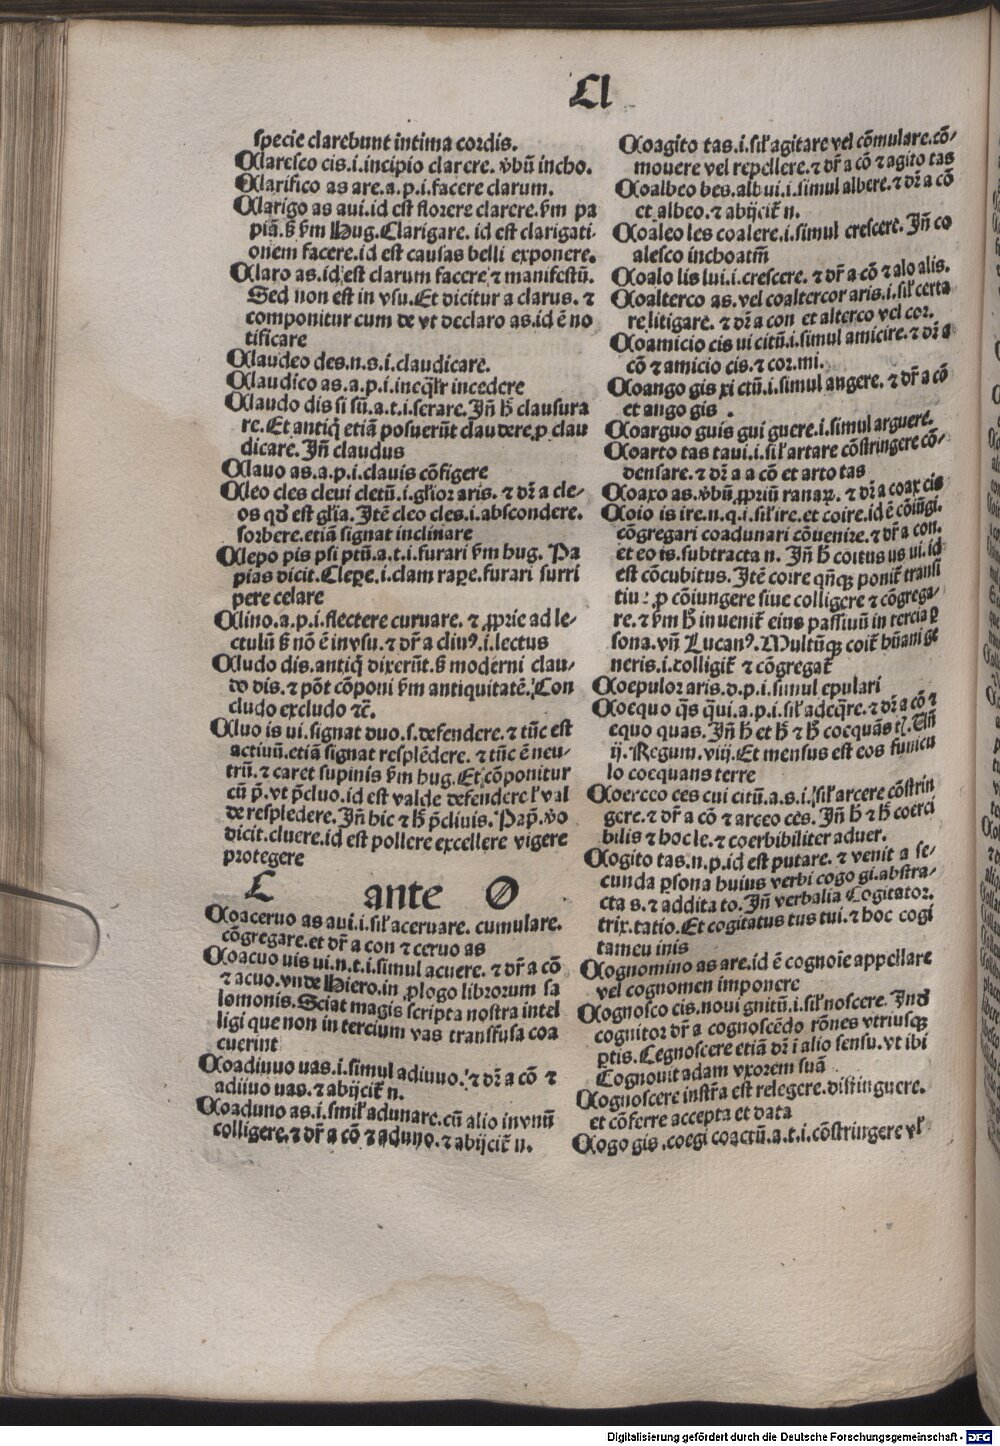 Cl
specie clarebunt intima cordis.
Claresco cis.i.incipio clarere. v̄bū incho.
Clarifico as are.a.p.i.facere clarum.
Clarigo as aui.id est florere clarere.v̄m pa
piā.ß v̄m Hug.Clarigare. id est clarigati-
onem facere.id est causas belli exponere.
Claro as.id est clarum facere ⁊ manifestū.
Sed non est in vsu.Et dicitur a clarus. ⁊
componitur cum de vt declaro as.id ē no
tificare
Claudeo des.n.s.i.claudicare.
Claudico as.a.p.i.ineq̄lr̄ incedere
Claudo dis si sū.a.t.i.serare.Jn̄ h̄ clausura
re.Et antiq̄ etiā posuerūt claudere.ꝓ clau
dicare. Jn̄ claudus
Clauo as.a.p.i.clauis cōfigere
Cleo cles cleui cletū.i.gl̄ior aris. ⁊ dr̄.a cle-
os qd̄ est gl̄ia. Jtē cleo cles.i.abscondere.
sorbere.etiā signat inclinare
Clepo pis psi ptū.a.t.i.furari v̄m hug. Pa
pias dicit.Clepe̱.i.clam rape̱.furari surri
pere celare
Clino.a.p.i.flectere curuare. ⁊ ꝓprie ad le-
ctulū ß nō ē invsu.⁊ dr̄ a cliuꝰ.i.lectus
Cludo dis.antiq̄ dixerūt.ß moderni clau-
do dis.⁊ pōt cōponi v̄m antiquitatē. Con
cludo excludo ⁊c̄.
Cluo is ui.signat duo.s.defendere.⁊ tūc est
actiuū.etiā signat resplēdere. ⁊ tūc ē neu-
trū.⁊ caret supinis v̄m hug.Et cōponitur
cū p̄.vt p̄cluo.id est valde defendere l̄ val
de respledere. Jn̄ hic ⁊ h̄ p̄cliuis. Pap̄.v̄o
dicit.cluere.id est pollere excellere vigere
protegere
C ante O
Coaceruo as aui.i.sil̄ aceruare. cumulare.
cōgregare.et dr̄ a con ⁊ ceruo as
Coacuo uis ui.n.t.i.simul acuere. ⁊ dr̄ a cō
⁊ acuo.vnde Hiero.in ꝓlogo librorum sa
lomonis.Sciat magis scripta nostra intel
ligi que non in tercium vas transfusa coa
cuerint
Coadiuuo uas.i.simul adiuuo. ⁊ dr̄ a cō ⁊
adiiuo uas.⁊ abijcit̄ n.
Coaduno as.i.smil̄ adunare.cū alio invnū
colligere.⁊ dr̄ a cō ⁊ aduno.⁊ abijcit̄ n.
Coagito tas.i.sil̄ agitare vel cōmulare.cō-
mouere vel repellere.⁊ dr̄ a cō ⁊ agito tas
Coalbeo bes.albui.i.simul albere.⁊ dr̄ a cō
et albeo.⁊ abijcit̄ n.
Coaleo les coalere.i.simul crescere. Jn̄ co
alesco inchoatm̄
Coalo lis lui.i.crescere. ⁊ dr̄ a cō ⁊ alo alis.
Coalterco as.vel coaltercor aris.i.sil̄ certa
re litigare. ⁊ dr̄ a con et alterco vel cor.
Coamicio cis ui citū.i.simul amicire.⁊ dr̄ a
cō ⁊ amicio cis.⁊ cor.mi.
Coango gis xi ctū.i.simul angere. ⁊ dr̄ a cō
et ango gis .
Coarguo guis gui guere.i.simul arguere.
Coarto tas taui.i.sil̄ artare cōstringere cō-
densare.⁊ dr̄ a a cō et arto tas
Coaxo as.v̄bū ꝓpriū ranaꝝ. ⁊ dr̄ a coax cis
Coio is ire.n.q.i.sil̄ ire.et coire.id ē cōiūgi.
cōgregari coadunari cōuenire.⁊ dr̄ a con.
et eo is.subtracta n. Jn̄ h̄ coitus us ui.id
est cōcubitus.Jtē coire qn̄qꝫ ponit̄ transi
tiu : ꝓ cōiungere siue colligere ⁊ cōgrega-
re.⁊ v̄m h̄ inuenit̄ eius passiuū in tercia p̱
sona.vn̄ Lucanꝰ.Multūqꝫ coit̄ hūani ge
neris.i.colligit̄ ⁊ cōgregat̄
Coepulor aris.d.p.i.simul epulari
Coequo q̄s q̄ui.a.p.i.sil̄ adeq̄re.⁊ dr̄ a cō ⁊
equo quas. Jn̄ h̄ et h̄ ⁊ h̄ coequās t̄. Vn̄
ij. Regum.viij.Et mensus est eos funicu
lo coequans terre
Coerceo ces cui citū.a.s.i. sil̄ arcere cōstrin
gere.⁊ dr̄ a cō ⁊ arceo ces. Jn̄ h̄ ⁊ h̄ coerci
bilis ⁊ hoc le.⁊ coerbibiliter aduer.
Cogito tas.n.p.id est putare. ⁊ venit a se-
cunda p̱sona huius verbi cogo gi.abstra-
cta s.⁊ addita to. Jn̄ verbalia Cogitator.
trix.tatio.Et cogitatus tus tui.⁊ hoc cogi
tameu inis
Cognomino as are.id ē cognoīe appellare
vel cognomen imponere
Cognosco cis.noui gnitū.i.sil̄ noscere. Jnd̄
cognitor dr̄ a cognoscēdo rōnes vtriusqꝫ
p̱tis. Cegnoscere etiā dr̄ ī alio sensu.vt ibi
Cognouit adam vxorem suā
Cognoscere instr̄a est relegere.distinguere.
et cōferre accepta et data
Cogo gis .coegi coactū.a.t.i.cōstringere vl̄
Digitalisierung gefördert durch die Deutsche Forschungsgemeinschaft - DFG